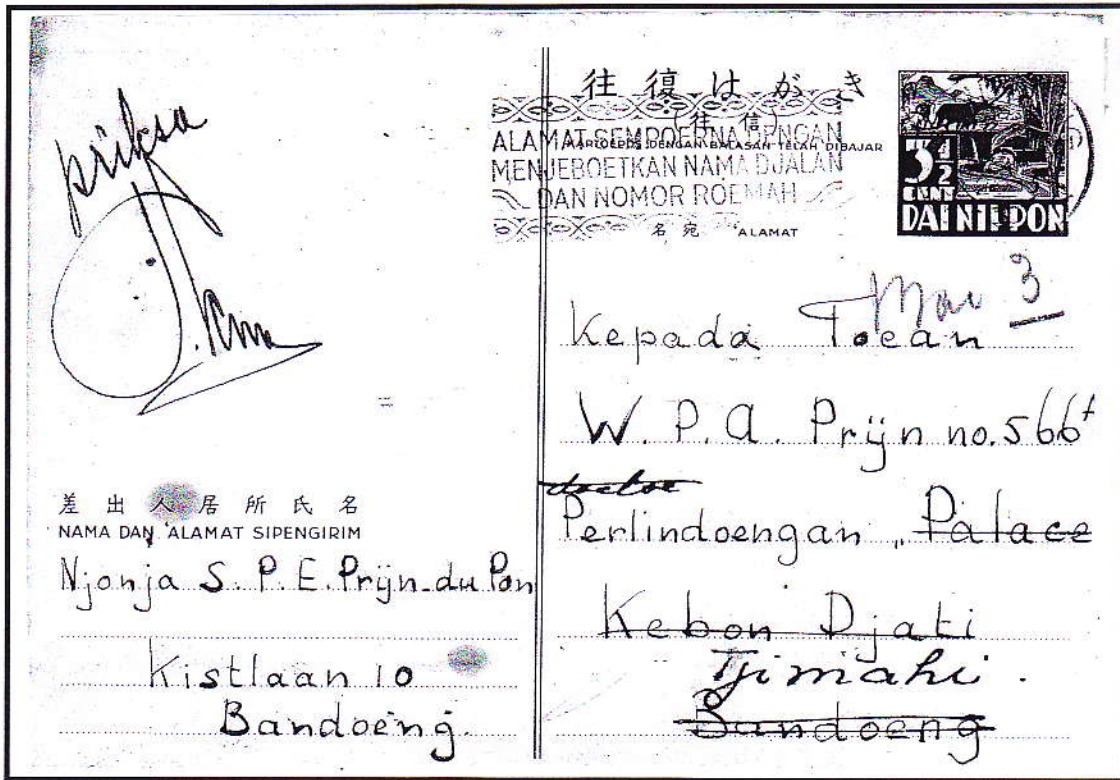 priksa
差出人居所氏名
NAMA DAN 'ALAMAT SIPENGIRIM
Njonja S. P. E. Prijn-du Pon
Kistlaan 10
Bandoeng.
往復はがき
(往信)
KARTOEPOS DENGAN BALASAN TELAH DIBAJAR
ALAMAT SEMPOERNA DENGAN
MENJEBOETKAN NAMA DJALAN
DAN NOMOR ROEMAH
名宛 'ALAMAT
3 1/2
CENT
DAI NIPPON
3
Kepada Toean
W. P. A. Prijn no. 566
Perlindoengan „ Palace
Kebon Djati
Tjimahi.
Bandoeng